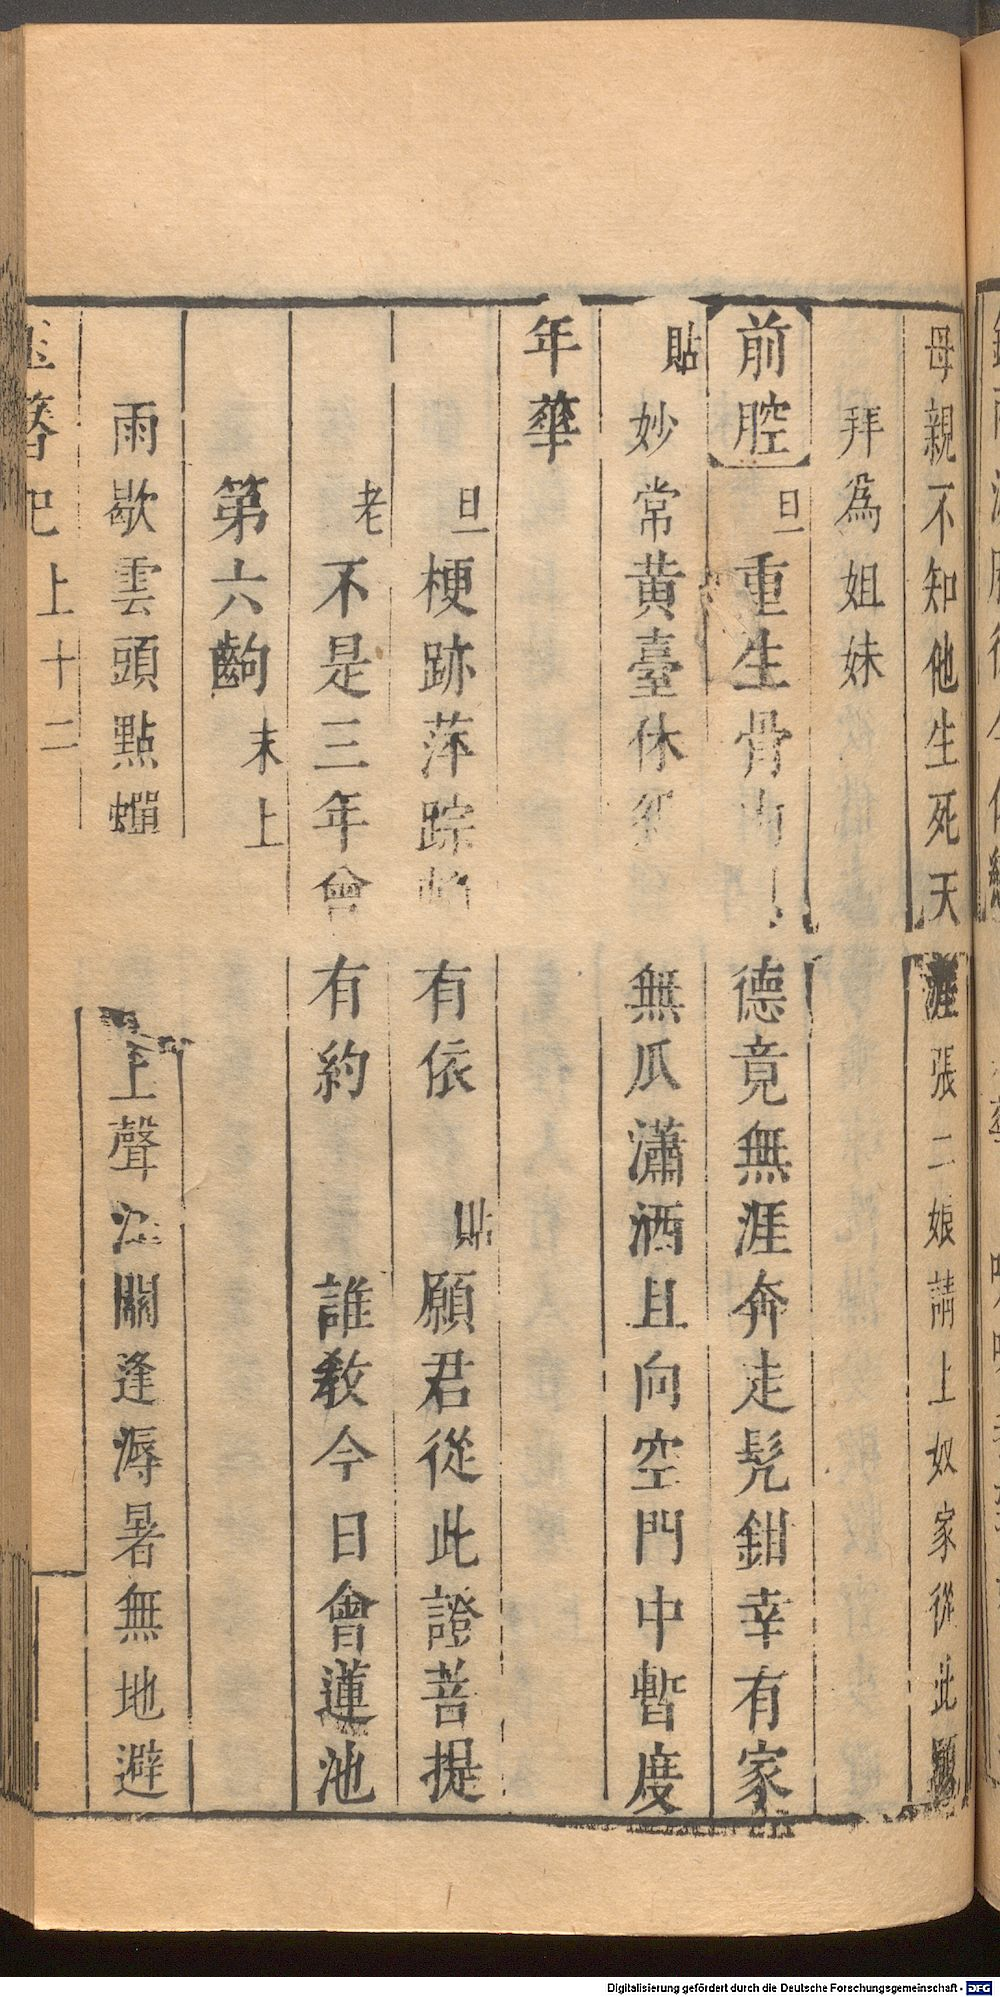 母親不知他生死天涯張二娘請上奴家從此願
拜爲姐妹
前腔 旦 重生骨肉 德竟無涯奔走髡鉗幸有家
貼 妙常黃臺休 無瓜瀟洒且向空門中暫度
年華
旦 梗跡萍踪 有依 貼 願君從此證菩提
老 不是三年會有約 誰教今日會蓮池
第六齣 末上
雨歇雲頭點蟬 上聲江關逢溽暑無地避
玉簪記 上 十二
Digitalisierung gefördert durch die Deutsche Forschungsgemeinschaft - DFG